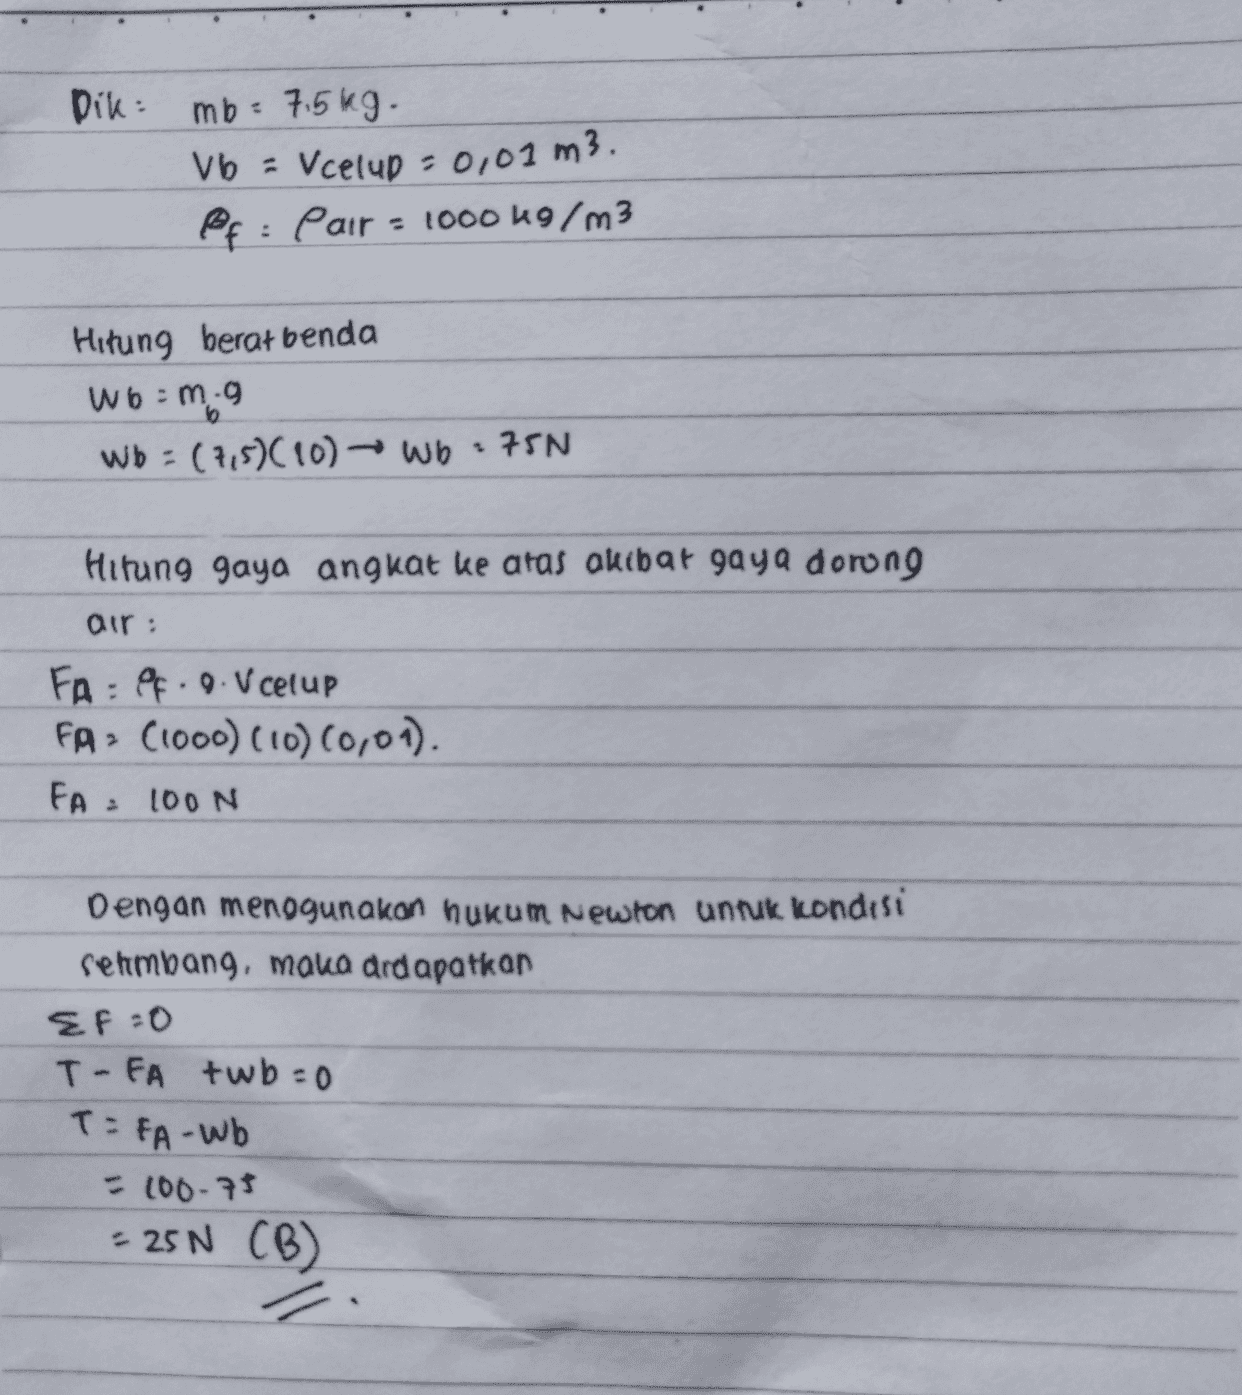 Dik: mb = 7.5 kg.
Vb = Vcelup = 0,01 m3.
ρf = ρair = 1000 kg/m3
Hitung berat benda
Wb = mb.g
Wb = (7,5)(10) → Wb = 75N
Hitung gaya angkat ke atas akibat gaya dorong
air :
FA = ρf . g. Vcelup
FA = (1000) (10) (0,01).
FA = 100 N
Dengan menggunakan hukum Newton untuk kondisi
setimbang, maka didapatkan
ΣF =0
T - FA +wb =0
T = FA -Wb
= 100-75
= 25 N (B)